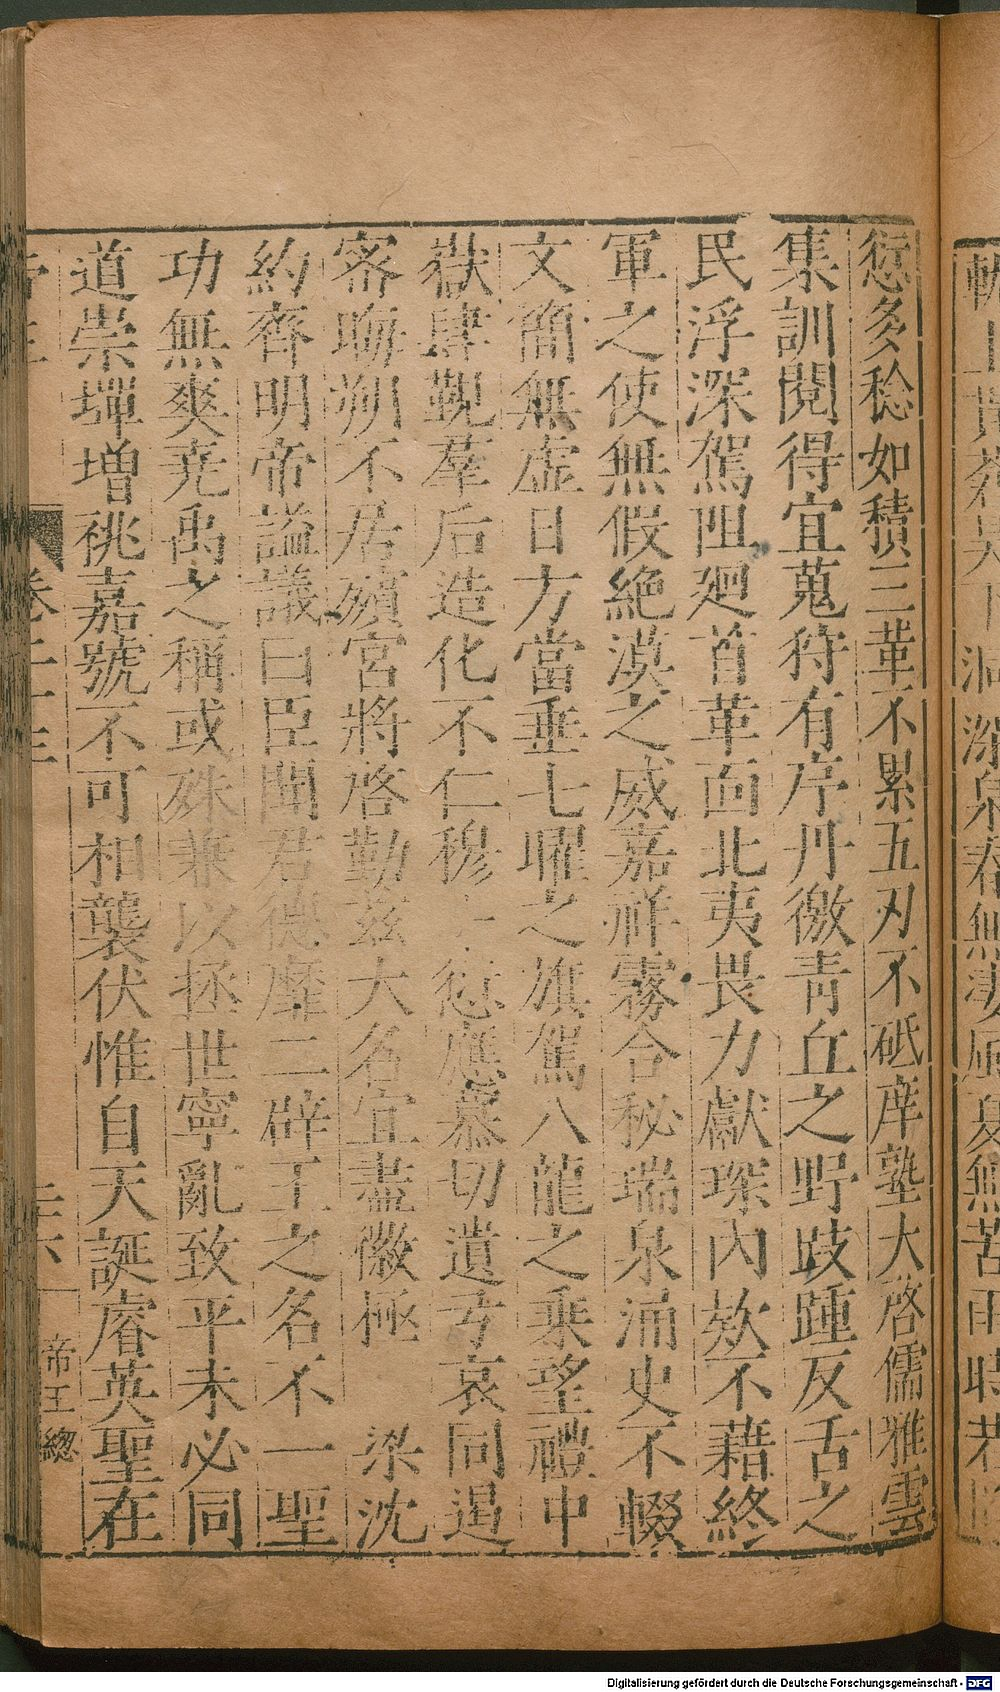 愆多稔如積三革不累五刃不砥庠塾大啓儒雅雲
集訓閱得宜蒐狩有序丹徼青丘之野歧踵反舌之
民浮深駕阻廻首革面北夷畏力獻琛內欵不藉終
軍之使無假絕漠之威嘉祥霧合秘瑞泉涌史不輟
文簡無虛日方當垂七曜之旗駕八龍之乗望禮中
嶽肆覲羣后造化不仁穆上愆應慕切遺弓哀同遏
密晦朔不居殯宮將啓勤茲大名宜盡徽極　梁沈
約齊明帝謚議曰臣聞君德靡二辟王之名不一聖
功無爽堯禹之稱或殊兼以拯世寧亂致平未必同
道崇墠增祧嘉號不可相襲伏惟自天誕睿英聖在
卷十三
三六
帝王總
Digitalisierung gefördert durch die Deutsche Forschungsgemeinschaft - DFG